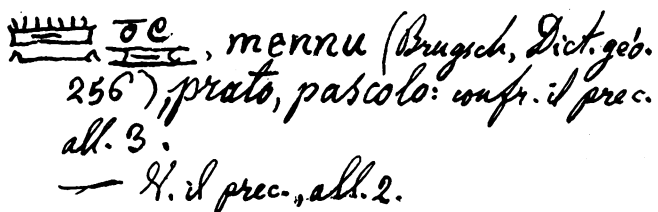 , mennu (Brugsch, Dict. géo.
256), prato, pascolo: confr. il prec.
all. 3.
— V. il prec., all. 2.